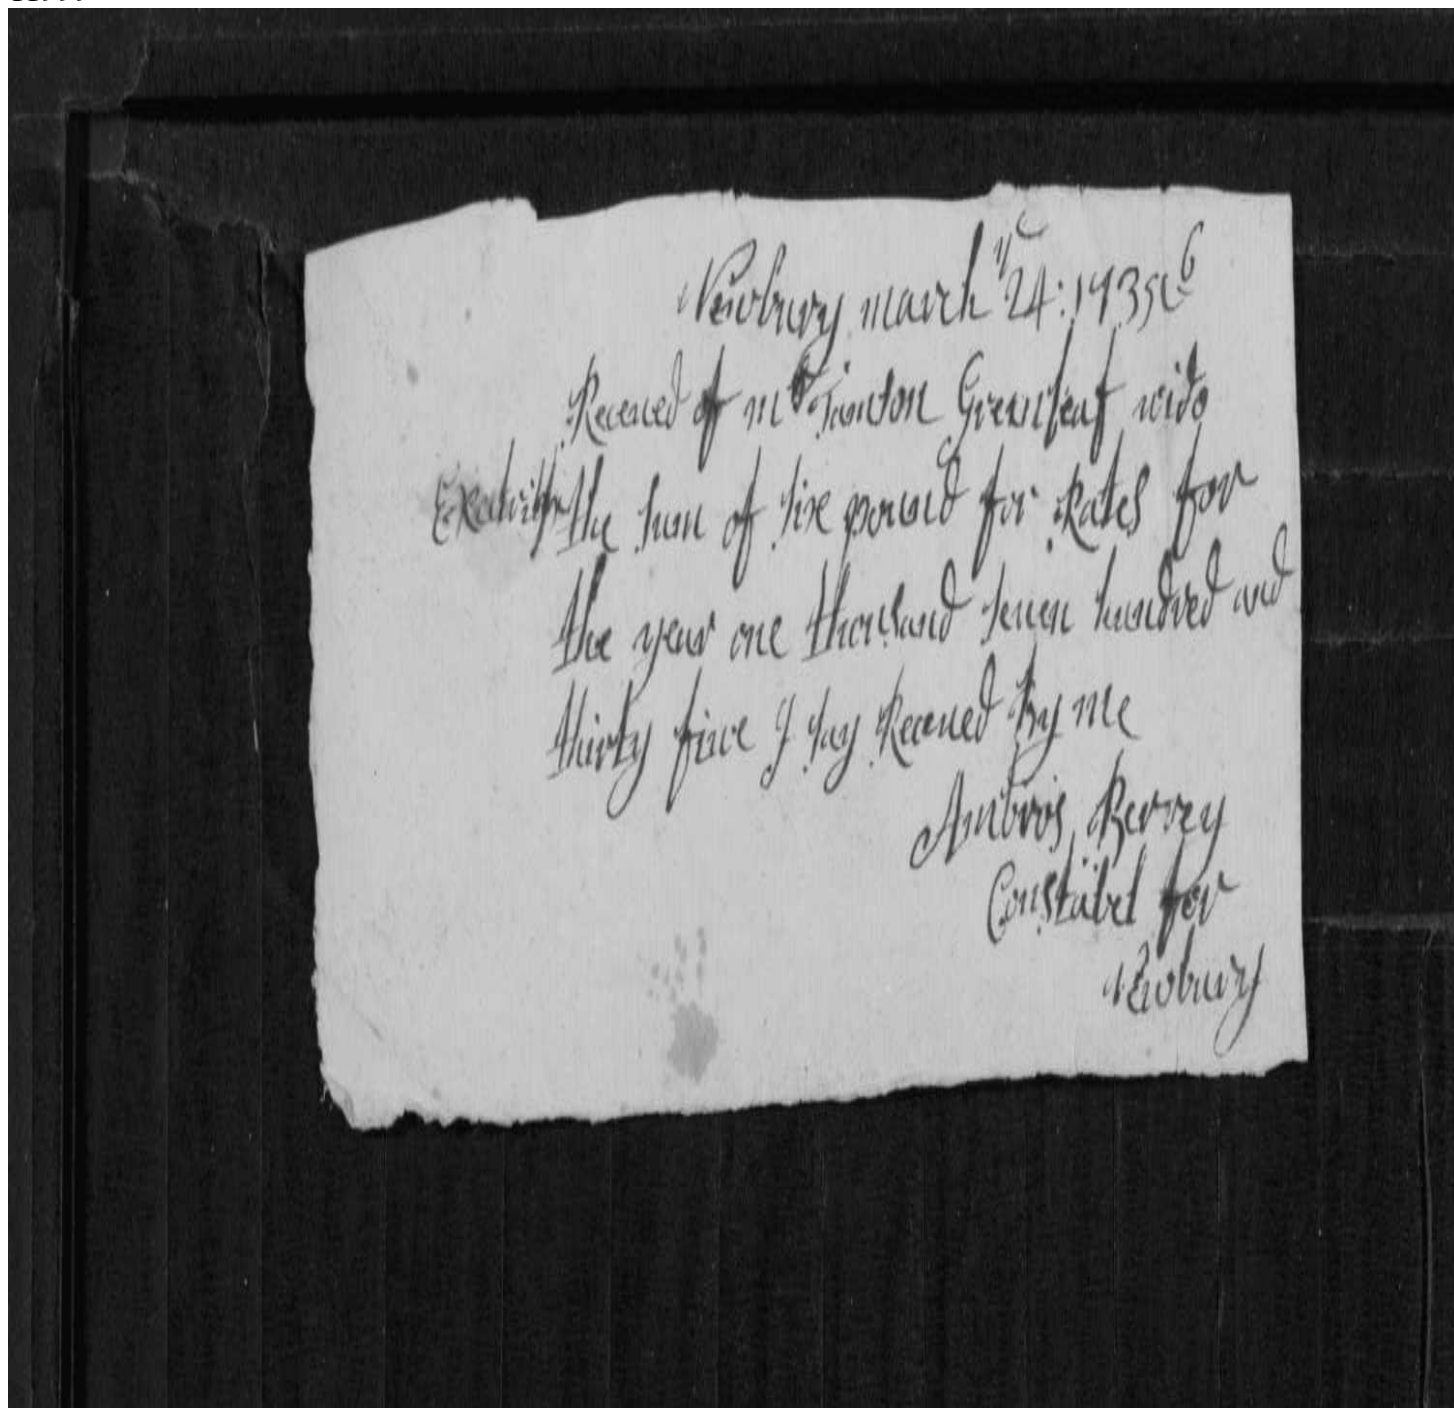 Newbury march ye 24: 1735/6
Receued of mrs Greenleaf wido
Exectrix the sum of six pound for Rates for
the year one thousand seuen hundred and
thirty fiue I say Receued By me
Ambros Berrey
Constabel for
Newbury